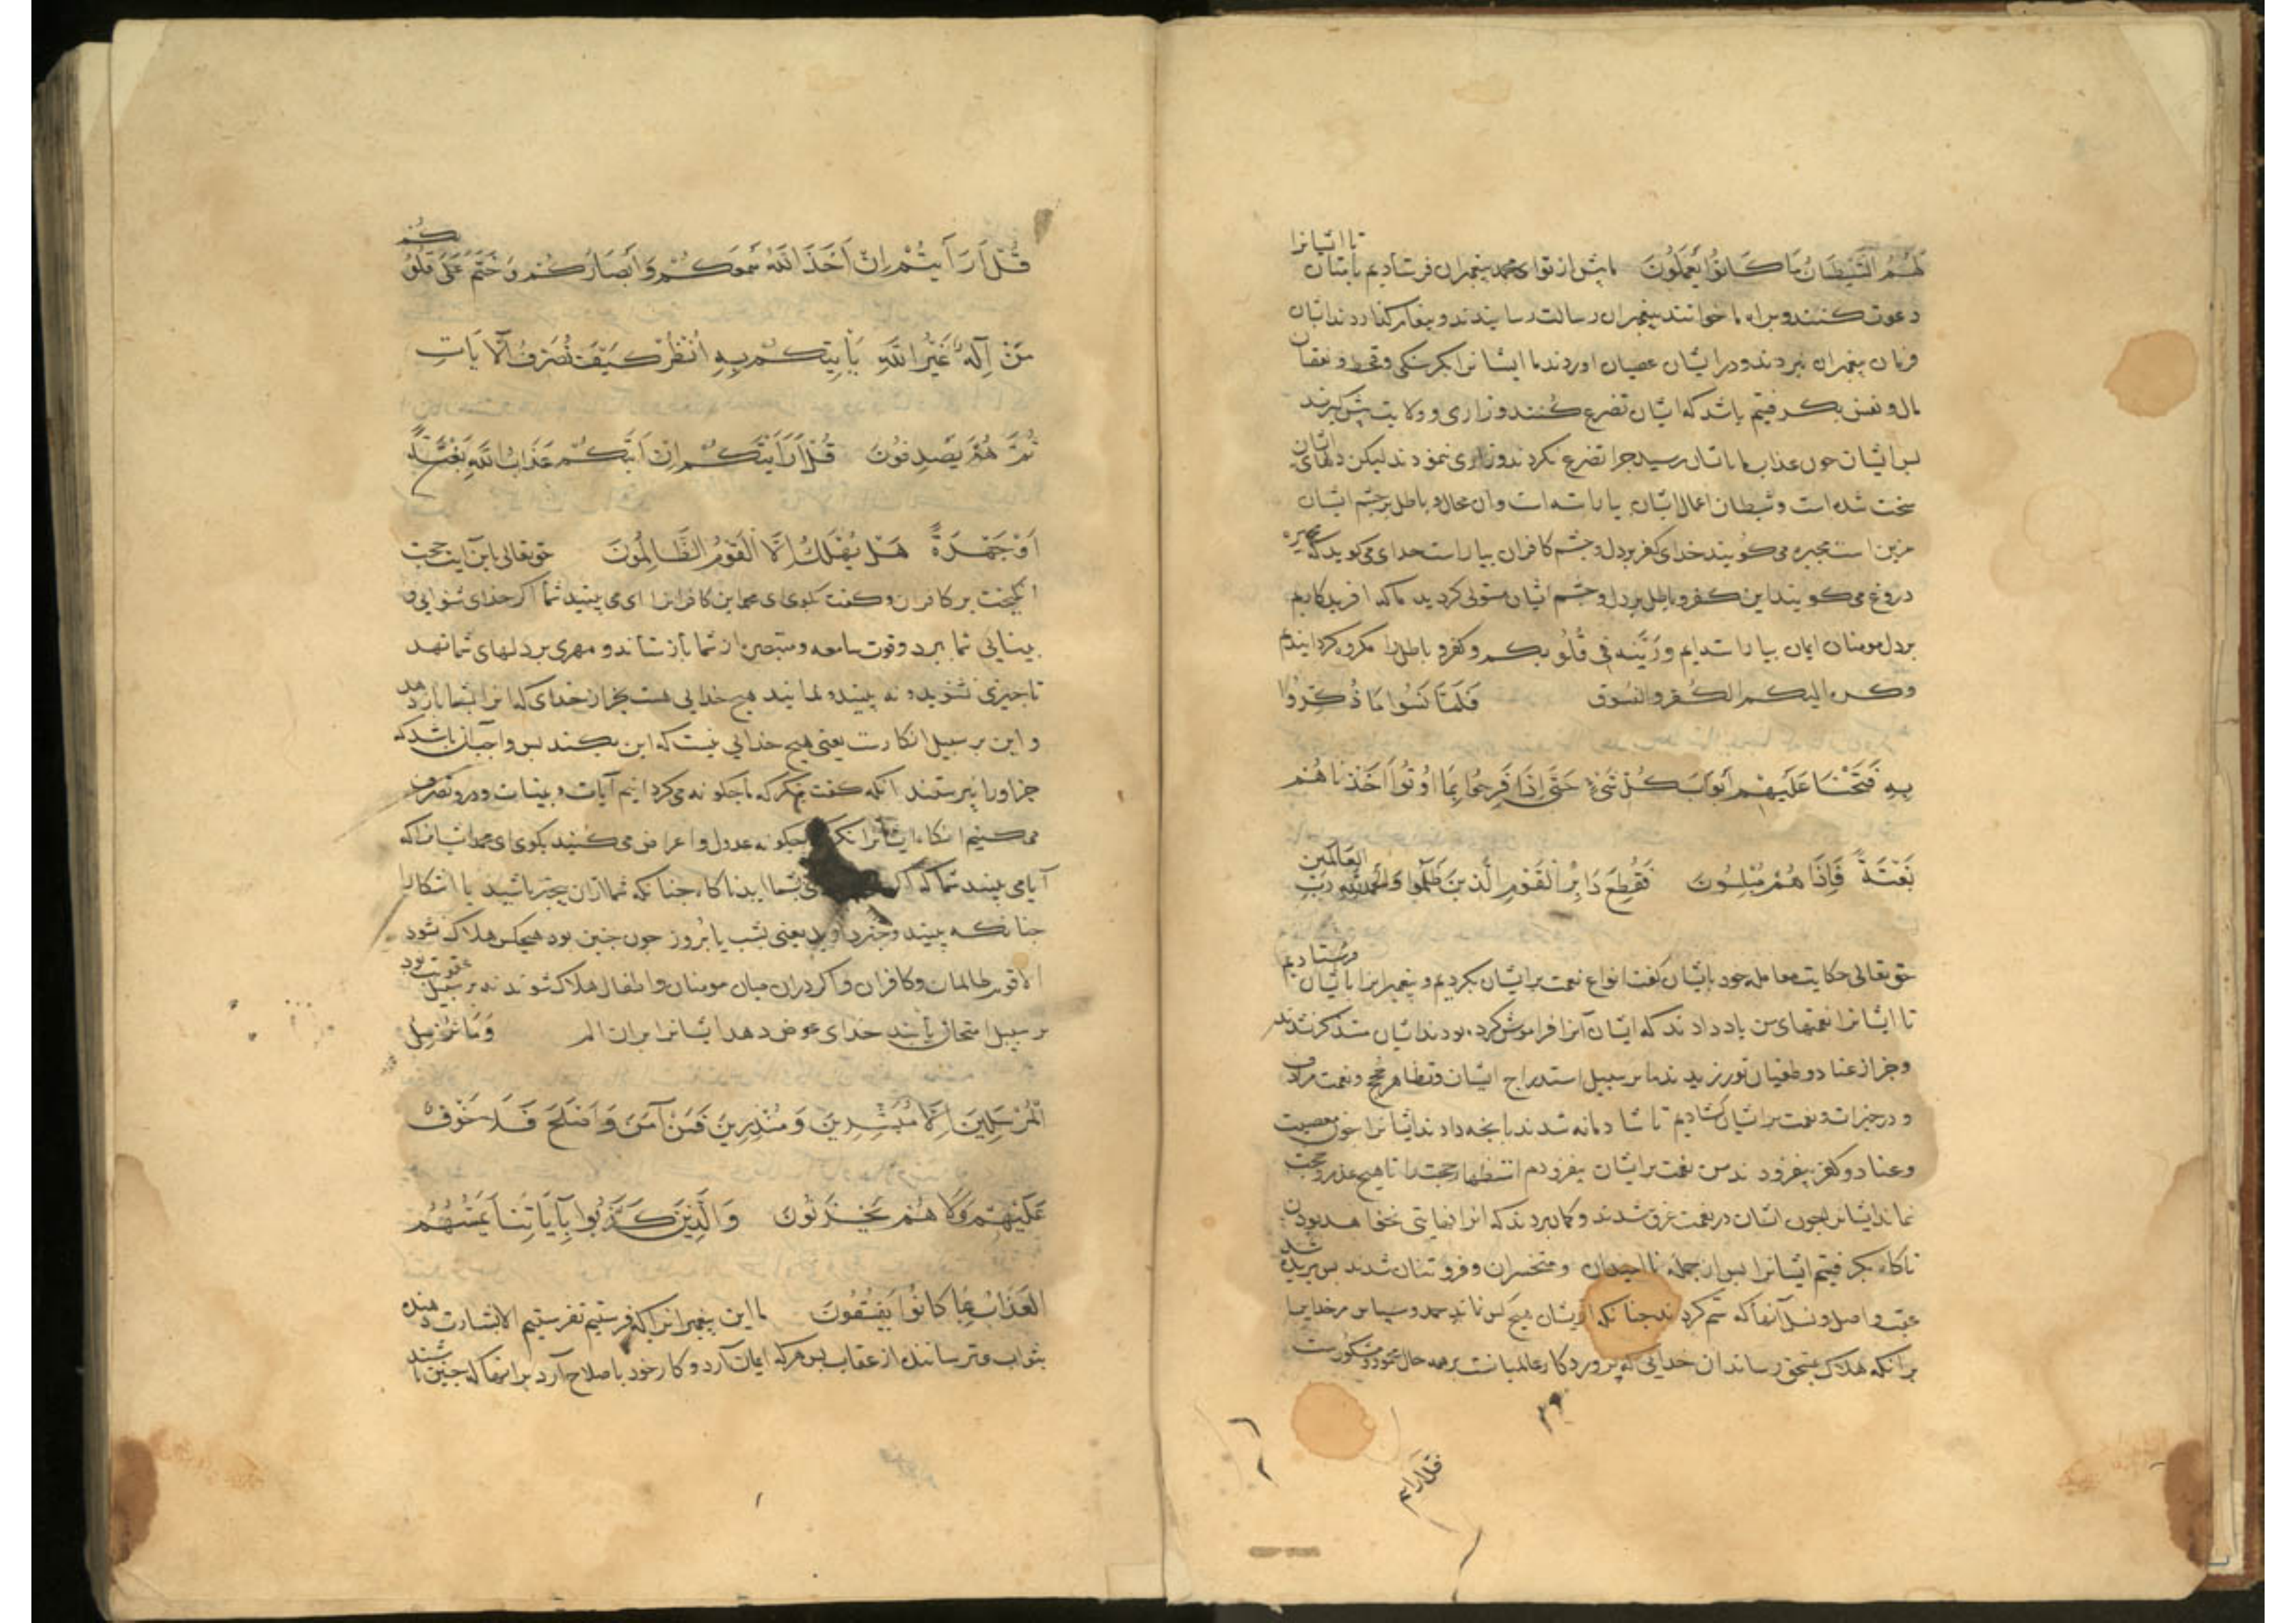 لَهُمُ الشَّيْطَانُ مَا كَانُوا يَعْمَلُونَ ما پیش از تو ای محمد پیغمبران فرستادیم بایشان تا ایشانرا
دعوت کنند و براه ما خوانند پیغمبران رسالت رسانیدند و پیغام گذاردند ایشان
فرمان پیغمبران نبردند و در ایشان عصیان اوردند ما ایشانرا بکرسنکی و قحط و نقصان
مال و نفس بکرفتیم باشد که ایشان تضرع کنند و زاری و ولایت پیش کیرند
بس ایشان چون عذاب ما باتشان رسید چرا تضرع نکردند و زاری ننمودند لیکن دلهای ایشان
سخت شده است و شیطان اعمال ایشان بیاراسته است و آن محال و باطل بر چشم ایشان
مزین است مجبره می کویند خدای کفر بر دل و چشم کافران بیاراست خدای می کوید که مجبره
دروغ می کویند این کفر و باطل بر دل و چشم ایشان متولی کردید ما که افریدکاریم
بر دل مومنان ایمان بیاراسته ایم وزینه فی قُلُوبکم و کفر و باطل را مکروه کردانیدیم
وکره الیکم الکفر والفسوق فَلَمَّا نَسُوا مَا ذُكِّرُوا
بِهِ فَتَحْنَا عَلَيْهِمْ أَبْوَابَ كُلِّ شَيْءٍ حَتَّى إِذَا فَرِحُوا بِمَا أُوتُوا أَخَذْنَاهُمْ
بَغْتَةً فَإِذَا هُمْ مُبْلِسُونَ فَقُطِعَ دَابِرُ الْقَوْمِ الَّذِينَ ظَلَمُوا وَالْحَمْدُ لِلَّهِ رَبِّ الْعَالَمِينَ
حق تعالی حکایت معامله خود بایشان کفت انواع نعمت بر ایشان بکردیم و پیغمبرانرا بایشان فرستادیم
تا ایشانرا نعمتهای من یاد دادند که ایشان آنرا فراموش کرده بودند ایشان متذکر نشدند
و جز از عناد و طغیان نورزیدند ما بر سبیل استدراج ایشان و تظاهر حجج و نعمت مرادف
و در خیرات و نعمت بر ایشان کشادیم تا شادمانه شدند بانچه دادند ایشانرا چون معصیت
و عناد و کفر بیفزودند من نعمت بر ایشان بیفزودم استظهار حجت را تا هیچ عذر و حجت
نماند ایشانرا چون ایشان در نعمت غرق شدند و کمان بردند که انرا نهایتی نخواهد بودن
ناکاه بکرفتیم ایشانرا بس از جمله ناامیدان و متحسران و فروتنان شدند بس بریده شد
عقب و اصل و نسل آنها که ستم کردند چنانکه از ایشان هیچ کس نماند حمد و سپاس مر خدایرا
بر انکه هلاک بمستحق رساند ان خدایی که پروردکار عالمیانست بر همه حال محمود و مشکورست
۲۹
قل ارایتم
قُلْ أَرَأَيْتُمْ إِنْ أَخَذَ اللَّهُ سَمْعَكُمْ وَأَبْصَارَكُمْ وَخَتَمَ عَلَى قُلُوبِكُمْ
مَنْ إِلَهٌ غَيْرُ اللَّهِ يَأْتِيكُمْ بِهِ انْظُرْ كَيْفَ نُصَرِّفُ الْآيَاتِ
ثُمَّ هُمْ يَصْدِفُونَ قُلْ أَرَأَيْتَكُمْ إِنْ أَتَاكُمْ عَذَابُ اللَّهِ بَغْتَةً
أَوْ جَهْرَةً هَلْ يُهْلَكُ إِلَّا الْقَوْمُ الظَّالِمُونَ حق تعالی باین آیت حجت
انکیخت بر کافران و کفت بکوی ای محمد این کافرانرا ای می بینید شما اکر خدای شنوایی و
بینایی شما ببرد و قوت سامعه و مبصره از شما باز ستاند و مهری بر دلهای شما نهد
تا چیزی نشنوید و نه بینید و ندانید هیچ خدایی هست بجز از خدای که انرا بشما باز دهد
و این بر سبیل انکارست یعنی هیچ خدایی نیست که این بکند بس واجب آن باشد که
جز او را نپرستند آنکه کفت بنکر که ما چکونه می کردانیم آیات و بینات و در و تصرف
می کنیم انکاه ایشانرا نکر چکونه عدول و اعراض می کنند بکوی ای محمد ایشانرا که
آیا می بینید شما که اکر بشما اید ناکاه چنانکه شما ازان بیخبر باشید یا اشکارا
چنانکه بینید و خبر دارید یعنی بشب یا بروز چون چنین بود هیچکس هلاک نشود
الا قوم ظالمان و کافران و اکر دران میان مومنان و اطفال هلاک شوند نه بر سبیل عقوبت بود
بر سبیل امتحان باشد خدای عوض دهد ایشانرا بران الم وَمَا نُرْسِلُ
الْمُرْسَلِينَ إِلَّا مُبَشِّرِينَ وَمُنْذِرِينَ فَمَنْ آمَنَ وَأَصْلَحَ فَلَا خَوْفٌ
عَلَيْهِمْ وَلَا هُمْ يَحْزَنُونَ وَالَّذِينَ كَذَّبُوا بِآيَاتِنَا يَمَسُّهُمُ
الْعَذَابُ بِمَا كَانُوا يَفْسُقُونَ ما این پیغمبرانرا که فرستیم نفرستیم الا بشارت دهنده
بثواب و ترساننده از عقاب بس هر که ایمان آرد و کار خود باصلاح آرد بر انها که چنین باشند